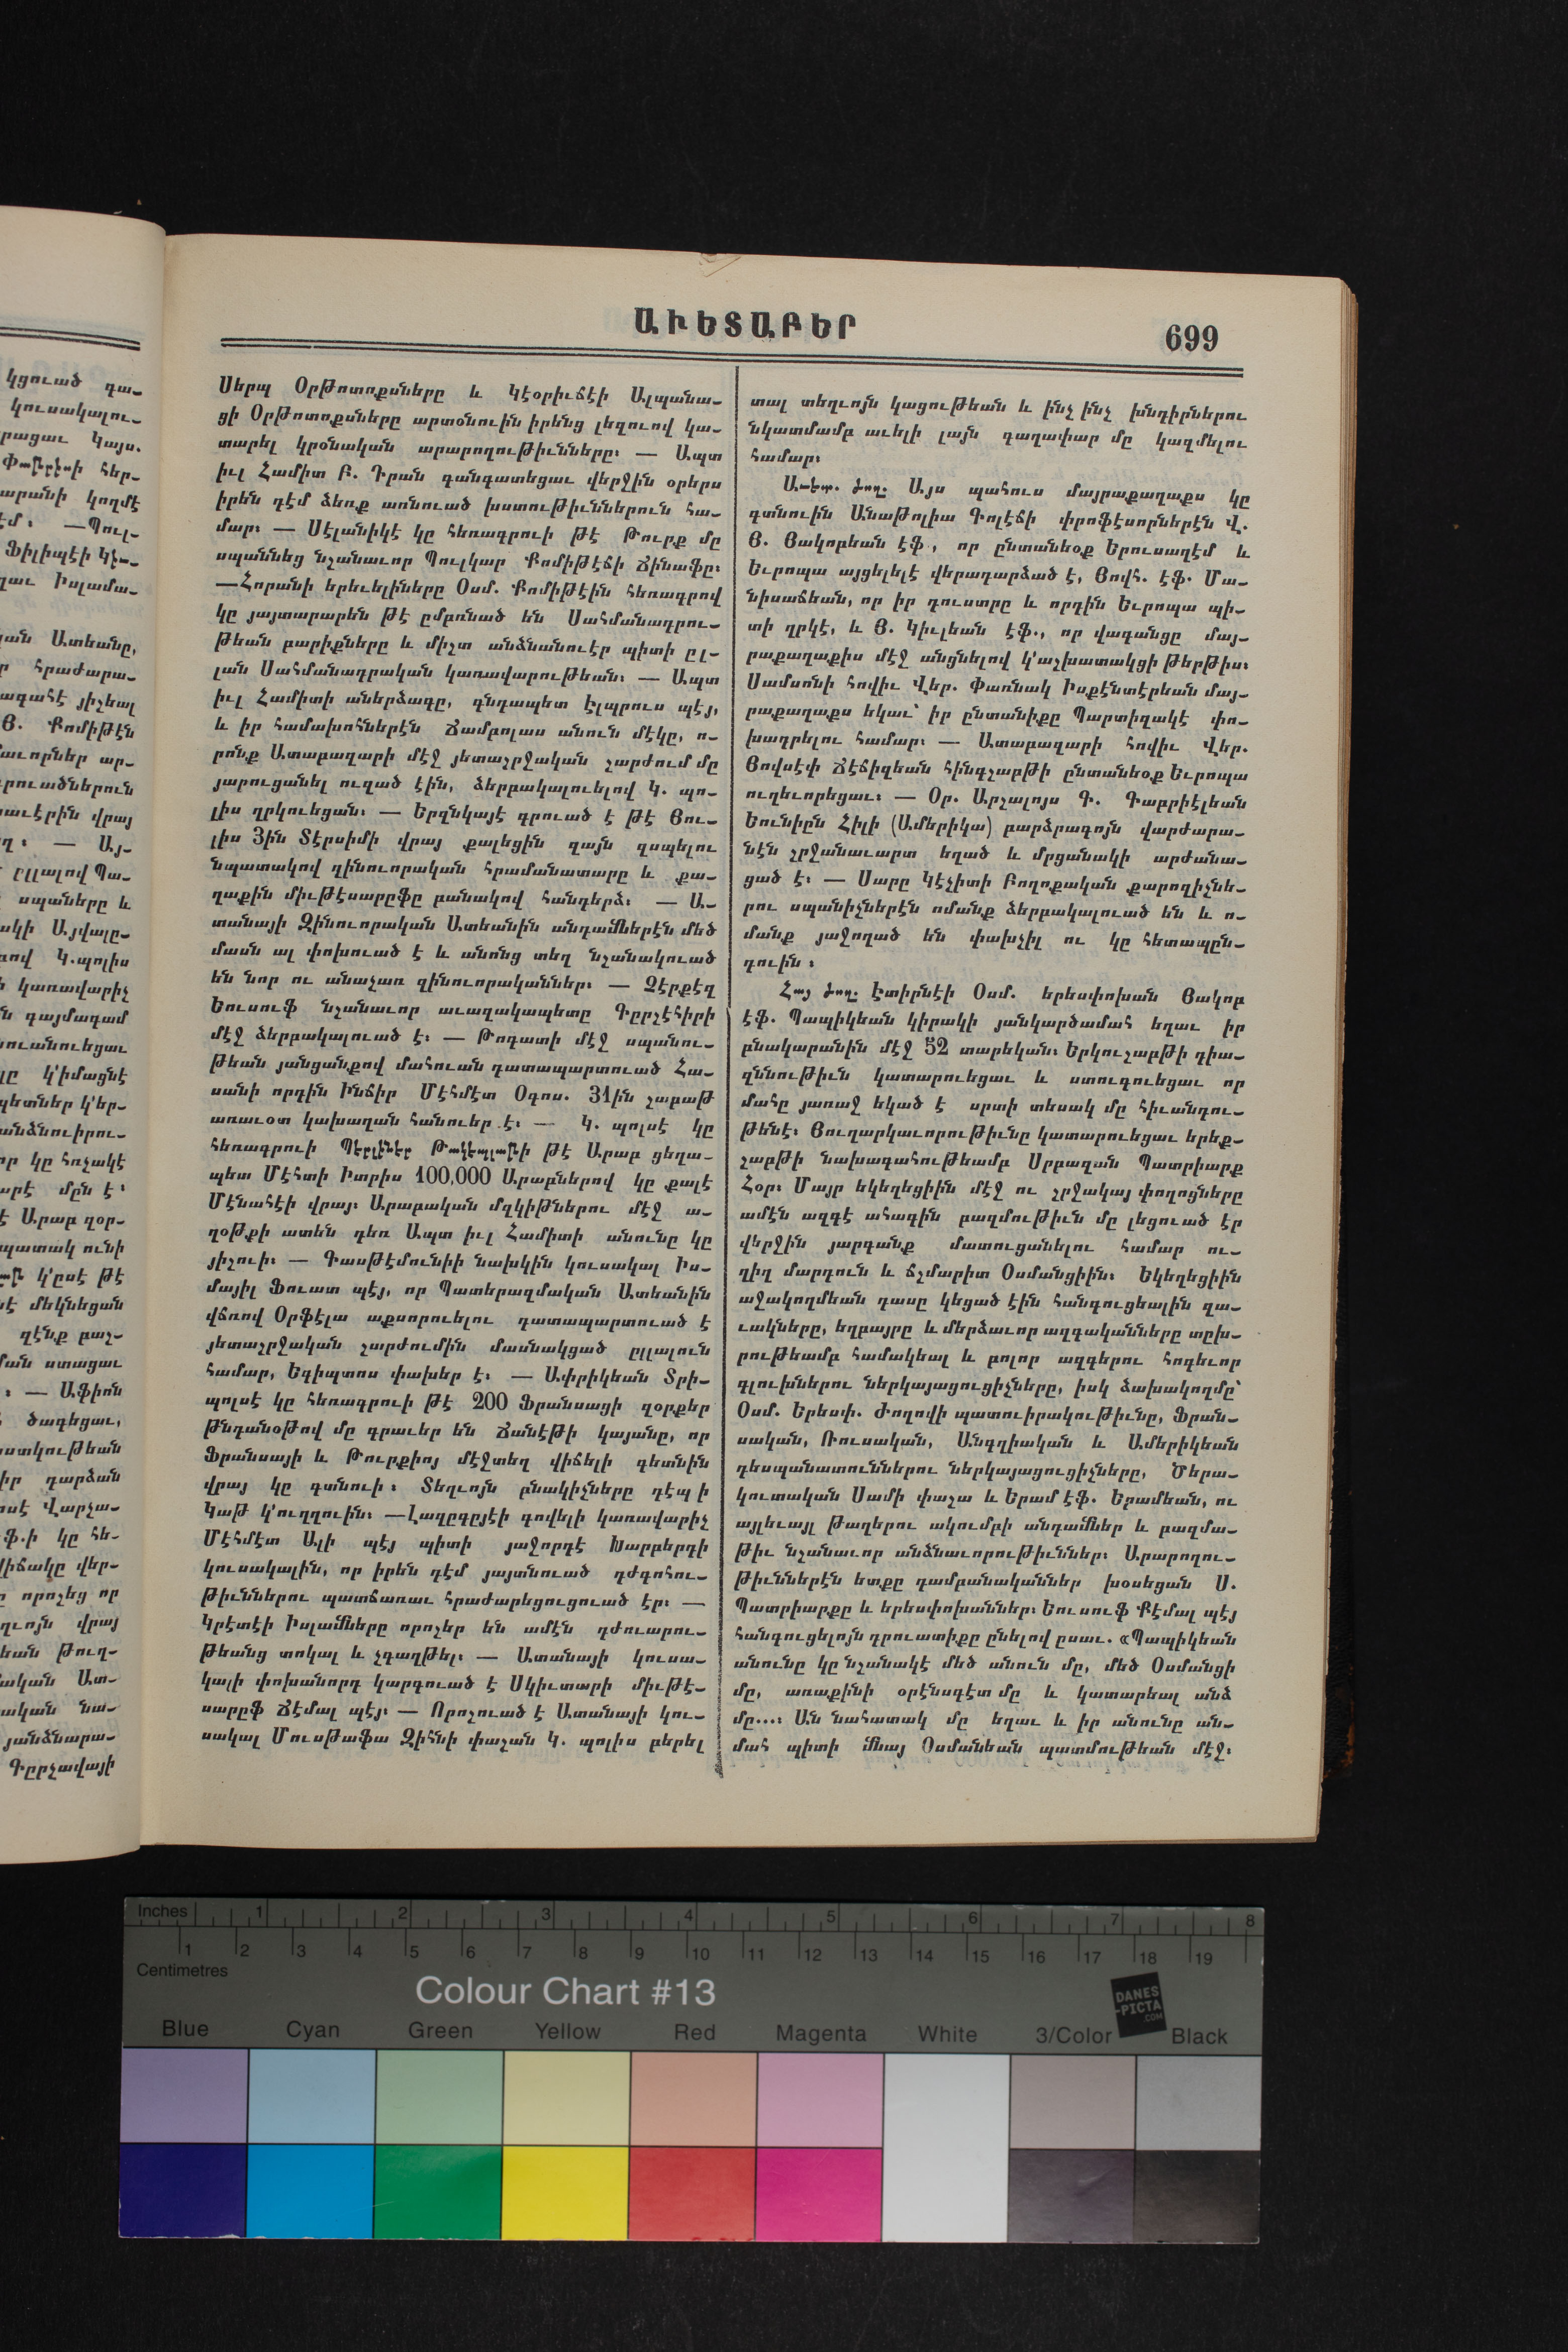 ԱՒԵՏԱԲԵՐ
699
Սերպ Օրթոտոքսները և Կէօրիւճէի Ալպանա-
ցի Օրթոտոքսները արտօնուին իրենց լեզուով կա-
տարել կրօնական արարողութիւնները։ — Ապտ
իւլ Համիտ Բ. Դրան գանգատեցաւ վերջին օրերս
իրեն դէմ ձեռք առնուած խստութիւններուն հա-
մար։ — Սէլանիկէ կը հեռագրուի թէ Թուրք մը
սպաննեց նշանաւոր Պուլկար Քոմիթէճի Ճինաֆը։
—Հորանի երեւելիները Օսմ. Քոմիթէին հեռագրով
կը յայտարարեն թէ ըմբռնած են Սահմանադրու-
թեան բարիքները և միշտ անձնանուէր պիտի ըլ-
լան Սահմանադրական կառավարութեան։ — Ապտ
իւլ Համիտի աներձագը, գնդապետ Էլպրուս պէյ,
և իր համախոհներէն Ճամբոլաս անուն մէկը, ո-
րոնք Ատաբազարի մէջ յետաշրջական շարժում մը
յարուցանել ուզած էին, ձերբակալուելով Կ. պո-
լիս ղրկուեցան։ — Երզնկայէ գրուած է թէ Յու-
լիս 3ին Տէրսիմի վրայ քալեցին զայն զսպելու
նպատակով զինուորական հրամանատարը և քա-
ղաքին միւթէսարըֆը բանակով հանդերձ։ — Ա-
տանայի Զինուորական Ատեանին անդամներէն մեծ
մասն ալ փոխուած է և անոնց տեղ նշանակուած
են նոր ու անաչառ զինուորականներ։ — Չէրքէզ
Եուսուֆ նշանաւոր աւազակապետը Գըրշէհիրի
մէջ ձերբակալուած է։ — Թոգատի մէջ սպանու-
թեան յանցանքով մահուան դատապարտուած Հա-
սանի որդին Ինճիր Մէհմէտ Օգոս. 31ին շաբաթ
առաւօտ կախաղան հանուեր է։ — Կ. պոլսէ կը
հեռագրուի Պերլիներ Թակեպլաթի թէ Արաբ ցեղա-
պետ Մէհտի Իտրիս 100,000 Արաբներով կը քալէ
Մէնահէի վրայ։ Արաբական մզկիթներու մէջ ա-
ղօթքի ատեն դեռ Ապտ իւլ Համիտի անունը կը
յիշուի։ — Գասթէմունիի նախկին կուսակալ Իս-
մայիլ Ֆուատ պէյ, որ Պատերազմական Ատեանին
վճռով Օրֆէլա աքսորուելու դատապարտուած է
յետաշրջական շարժումին մասնակցած ըլլալուն
համար, Եգիպտոս փախեր է։ — Ափրիկեան Տրի-
պոլսէ կը հեռագրուի թէ 200 Ֆրանսացի զօրքեր
թնդանօթով մը գրաւեր են Ճանէթի կայանը, որ
Ֆրանսայի և Թուրքիոյ մէջտեղ վիճելի գետնին
վրայ կը գտնուի։ Տեղւոյն բնակիչները դէպ ի
Կաթ կ՚ուղղուին։ —Լազըգըյէի գովելի կառավարիչ
Մէհմէտ Ալի պէյ պիտի յաջորդէ Խարբերդի
կուսակալին, որ իրեն դէմ յայտնուած դժգոհու-
թիւններու պատճառաւ հրաժարեցուցուած էր։ —
Կրէտէի Իսլամները որոշեր են ամէն դժուարու-
թեանց տոկալ և չգաղթել։ — Ատանայի կուսա-
կալի փոխանորդ կարգուած է Սկիւտարի միւթէ-
սարըֆ Ճէմալ պէյ։ — Որոշուած է Ատանայի կու-
սակալ Մուսթաֆա Զիհնի փաշան Կ. պոլիս բերել
տալ տեղւոյն կացութեան և ինչ ինչ խնդիրներու
նկատմամբ աւելի լայն գաղափար մը կազմելու
համար։
Աւետ. Ժող. Այս պահուս մայրաքաղաքս կը
գտնուին Անաթոլիա Գոլէճի փրոֆէսորներէն Վ.
Յ. Յակոբեան էֆ., որ ընտանեօք Երուսաղէմ և
Եւրոպա այցելելէ վերադարձած է, Յովհ. էֆ. Մա-
նիսաճեան, որ իր դուստրը և որդին Եւրոպա պի-
տի ղրկէ, և Յ. Կիւլեան էֆ., որ վաղանցը մայ-
րաքաղաքիս մէջ անցնելով կ՚աշխատակցի թերթիս։
Սամսոնի հովիւ Վեր. Փառնակ Իսքէնտէրեան մայ-
րաքաղաքս եկաւ՝ իր ընտանիքը Պարտիզակէ փո-
խադրելու համար։ — Ատաբազարի հովիւ Վեր.
Յովսէփ Ճէճիզեան հինգշաբթի ընտանեօք Եւրոպա
ուղեւորեցաւ։ — Օր. Արշալոյս Գ. Գաբրիէլեան
Եունիըն Հիլի (Ամերիկա) բարձրագոյն վարժարա-
նէն շրջանաւարտ եղած և մրցանակի արժանա-
ցած է։ — Սարը Կէչիտի Բողոքական քարոզիչնե-
րու սպանիչներէն ոմանք ձերբակալուած են և ո-
մանք յաջողած են փախչիլ ու կը հետապըն-
դուին։
Հայ Ժող. Էտիրնէի Օսմ. երեսփոխան Յակոբ
էֆ. Պապիկեան կիրակի յանկարծամահ եղաւ իր
բնակարանին մէջ 52 տարեկան։ Երկուշաբթի դիա-
զննութիւն կատարուեցաւ և ստուգուեցաւ որ
մահը յառաջ եկած է սրտի տեսակ մը հիւանդու-
թենէ։ Յուղարկաւորութիւնը կատարուեցաւ երեք-
շաբթի նախագահութեամբ Սրբազան Պատրիարք
Հօր։ Մայր եկեղեցիին մէջ ու շրջակայ փողոցները
ամէն ազգէ ահագին բազմութիւն մը լեցուած էր
վերջին յարգանք մատուցանելու համար ու-
ղիղ մարդուն և ճշմարիտ Օսմանցիին։ Եկեղեցիին
աջակողմեան դասը կեցած էին հանգուցեալին զա-
ւակները, եղբայրը և մերձաւոր ազգականները տըխ-
րութեամբ համակեալ և բոլոր ազգերու հոգեւոր
գլուխներու ներկայացուցիչները, իսկ ձախակողմը՝
Օսմ. Երեսփ. Ժողովի պատուիրակութիւնը, Ֆրան-
սական, Ռուսական, Անգղիական և Ամերիկեան
դեսպանատուններու ներկայացուցիչները, Ծերա-
կուտական Սամի փաշա և Երամ էֆ. Երամեան, ու
այլեւայլ թաղերու ակումբի անդամներ և բազմա-
թիւ նշանաւոր անձնաւորութիւններ։ Արարողու-
թիւններէն ետքը դամբանականներ խօսեցան Ս.
Պատրիարքը և երեսփոխաններ։ Եուսուֆ Քէմալ պէյ
հանգուցելոյն դրուատիքը ընելով ըսաւ. «Պապիկեան
անունը կը նշանակէ մեծ անուն մը, մեծ Օսմանցի
մը, առաքինի օրէնսդէտ մը և կատարեալ անձ
մը....։ Ան նահատակ մը եղաւ և իր անունը ան-
մահ պիտի մնայ Օսմանեան պատմութեան մէջ։
Inches 1 2 3 4 5 6 7 8
1 2 3 4 5 6 7 8 9 10 11 12 13 14 15 16 17 18 19
Centimetres
Colour Chart #13
DANES
-PICTA
.COM
Blue Cyan Green Yellow Red Magenta White 3/Color Black